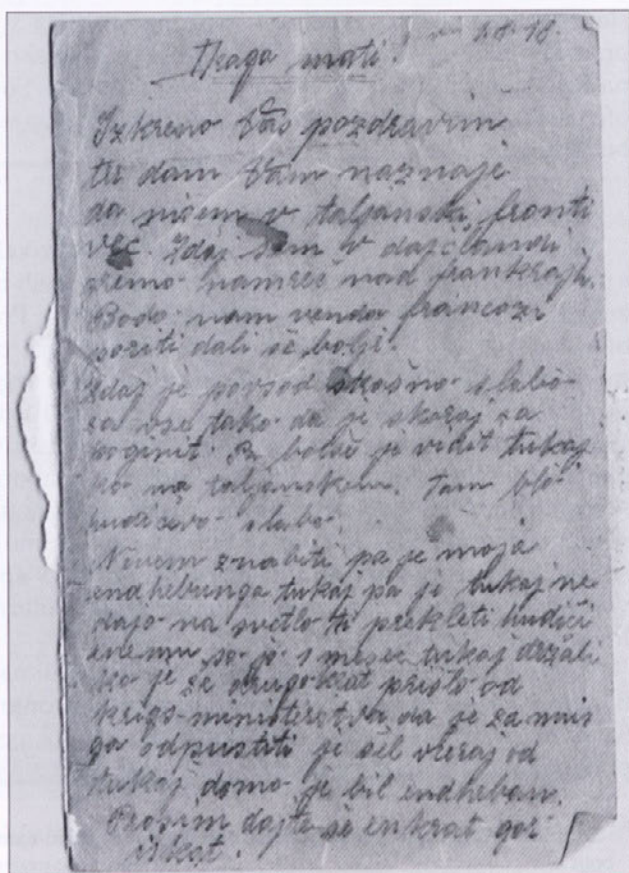 Draga mati! 18.
Izkreno Vas pozdravim
ter dam Vam naznaje
da nisem v taljanski fronti
več. Zdaj sem v dajčlandi
gremo namreč nad frankrajh.
Bodo nam venda francozi
poziti dali še bolji.
Zdaj je povsod strašno slabo
za vse tako da je skoraj za
poginit. Pa bolše je vidit tukaj
ko na taljanskem. Tam blo
hudičevo slabo.
Nevem znabiti pa je moja
endhebunga tukaj pa je tukaj ne
dajo na svetlo ti prekleti hudiči
enemu so jo 1 mesec tukaj držali
ko je še drugokrat prišlo od
krigsministerstva da je za mus
ga odpustiti je šel včeraj od
tukaj domo je bil endheban.
Prosim dajte še enkrat gor
iskat.